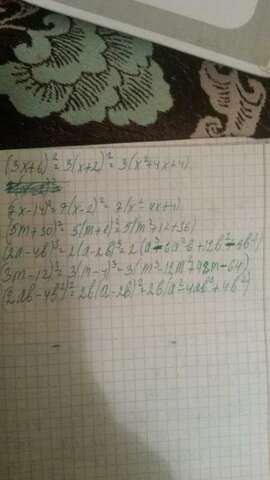 (3x+6)²=3(x+2)²=3(x²+4x+4)
(7x-14)²=7(x-2)²=7(x²-4x+4)
(5m+30)²=5(m+6)²=5(m²+12+36)
(2a-4b)³=2(a-2b)³=2(a³-6a²b+12b²-8b³)
(3m-12)³=3(m-4)³=3(m³-12m²+48m-64)
(2ab-4b²)²=2b(a-2b)²=2b(a²-4ab²+4b²)